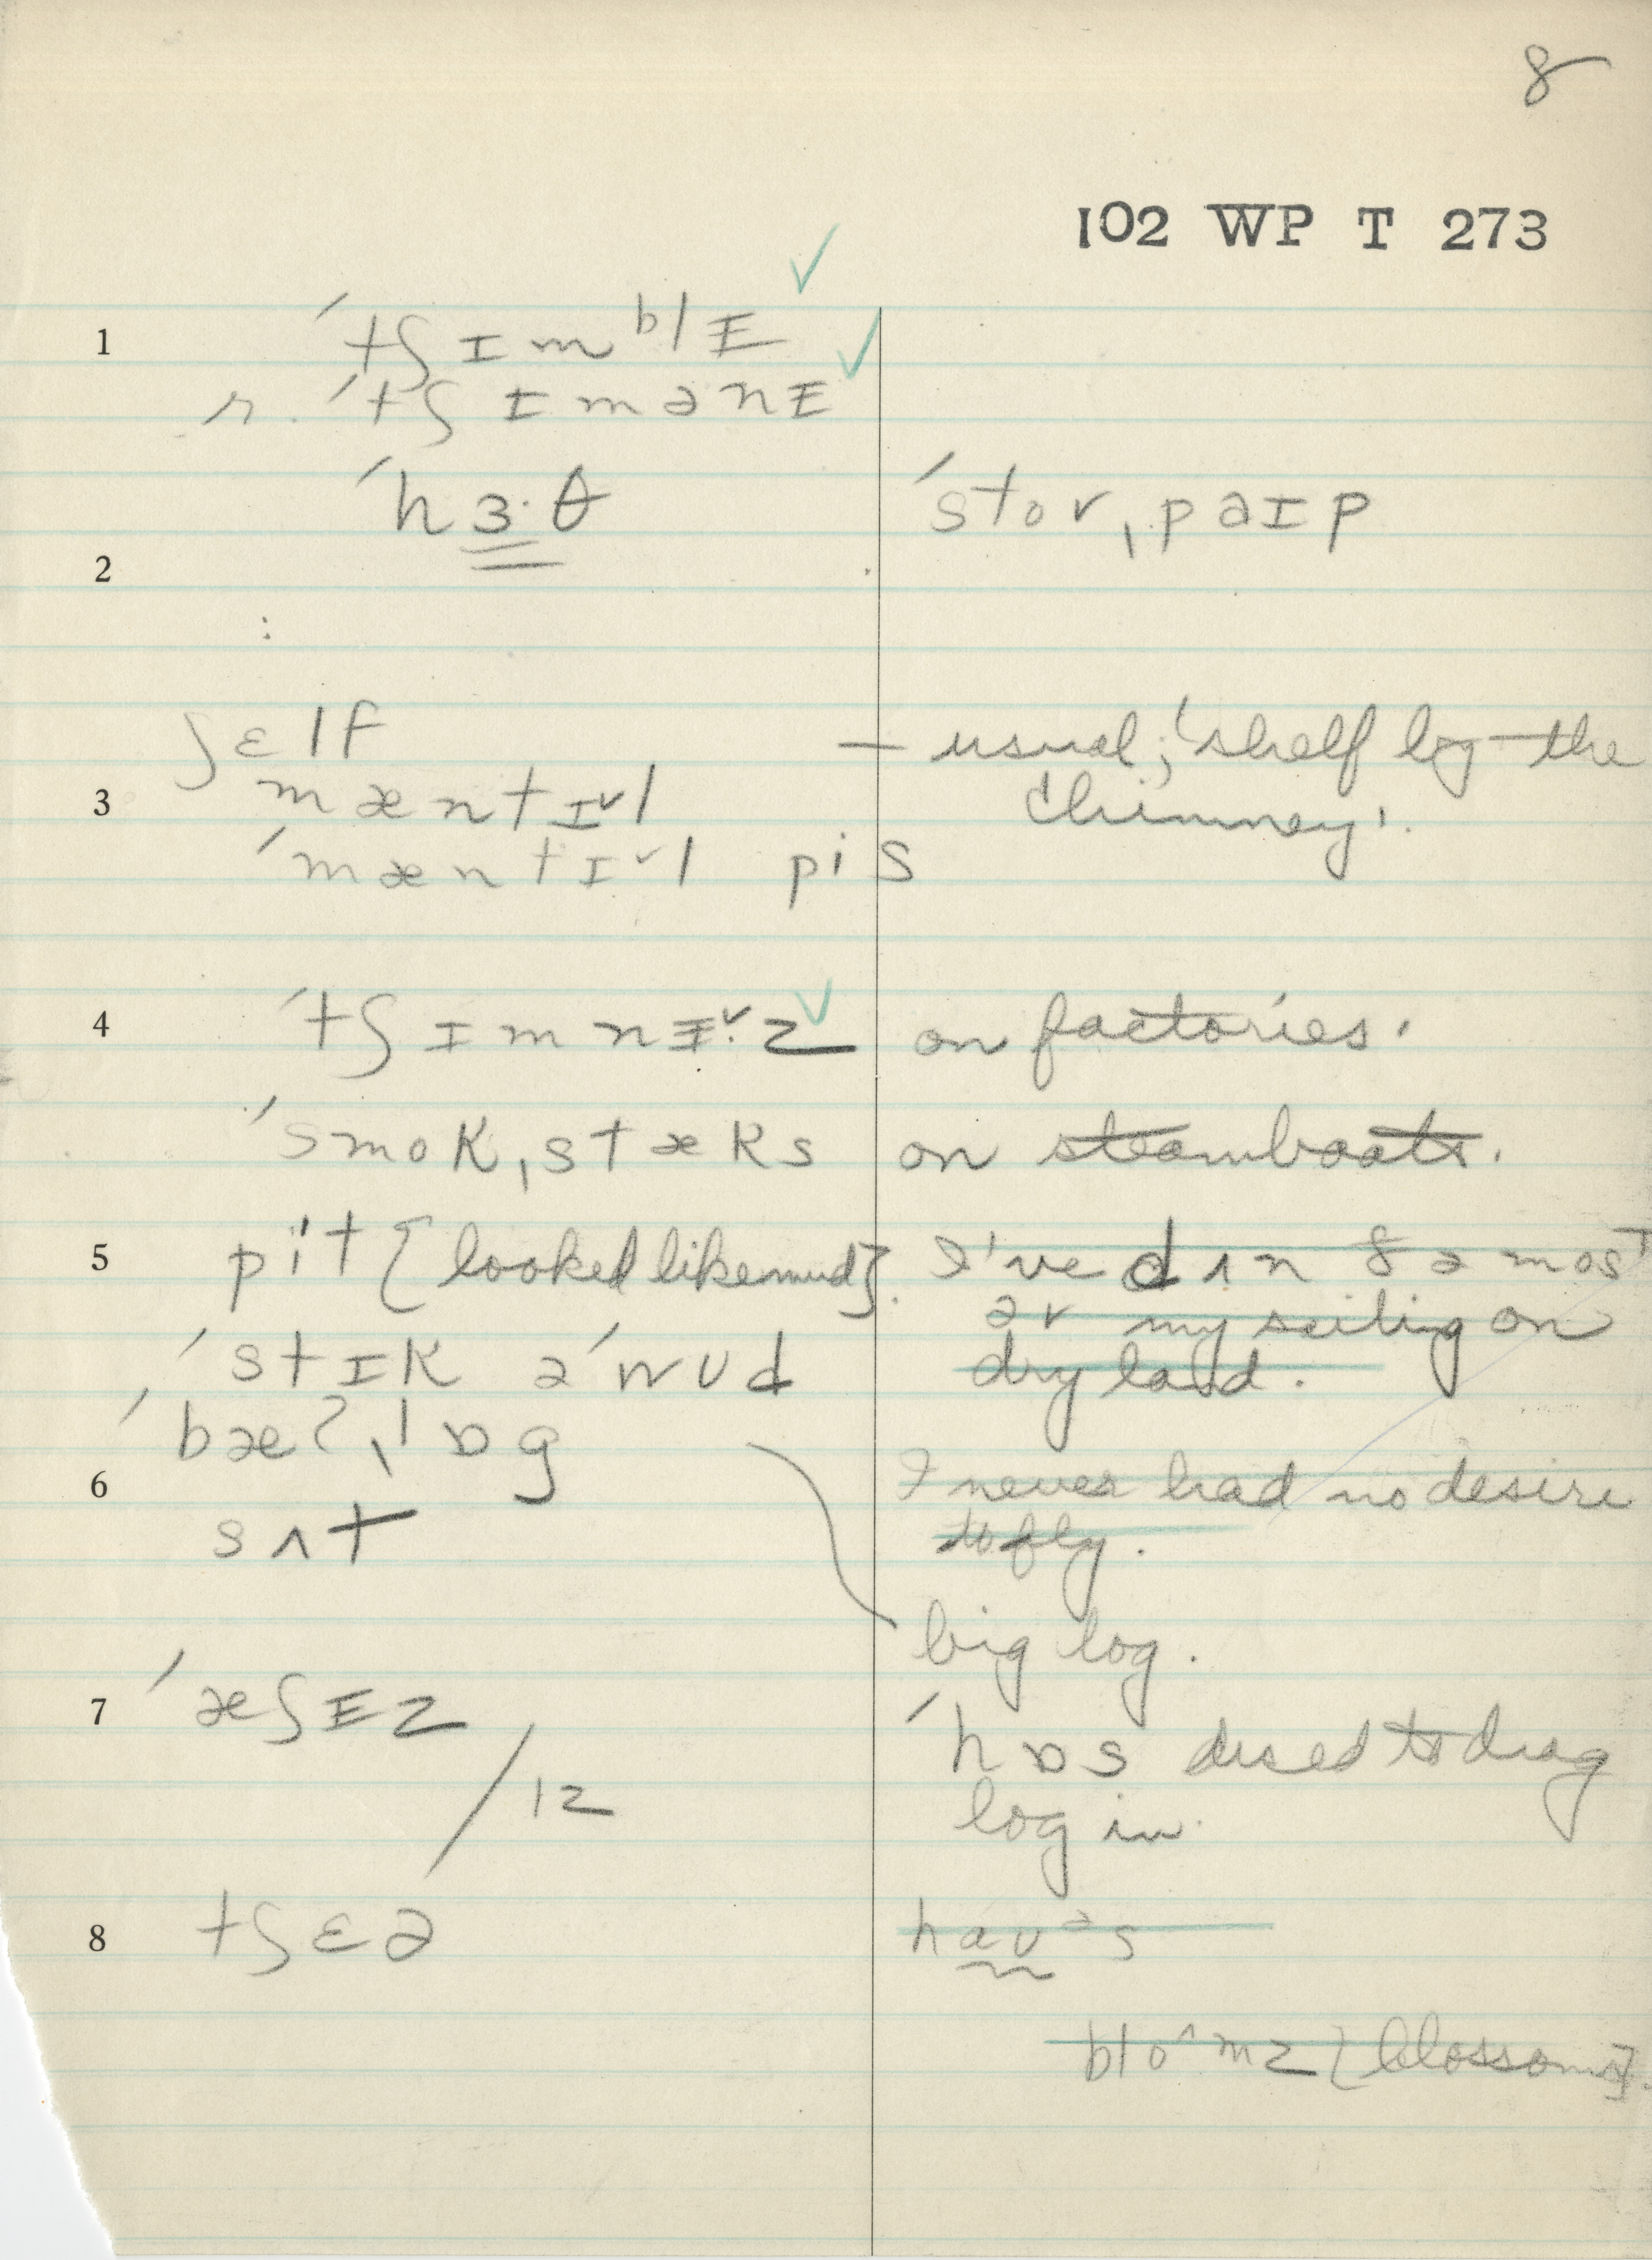 8
102 WP T 273
1 ˈtʃɪmblɪ
r. ˈtʃɪmənɪ
ˈhɜ·θ ˈstov ˌpaɪp
2
:
ʃɛlf — usual; 'shelf by the
3 mæntɪ˅l chimney'.
ˈmæntɪ˅l pis
4 ˈtʃɪmnɪ˅·z on factories.
ˈsmok ˌstæks on steamboats.
5 pit [looked like mud]. I've dʌn ðə most
əv my sailing on
ˈstɪk əˈwud dry land.
ˈbæʔ ˌlɒg
6 I never had no desire
sʌt to fly.
big log.
7 ˈæʃɪz
ˈhɒs used to drag
/12 log in.
8 tʃɛə haʊəs
blo^mz [blossoms].